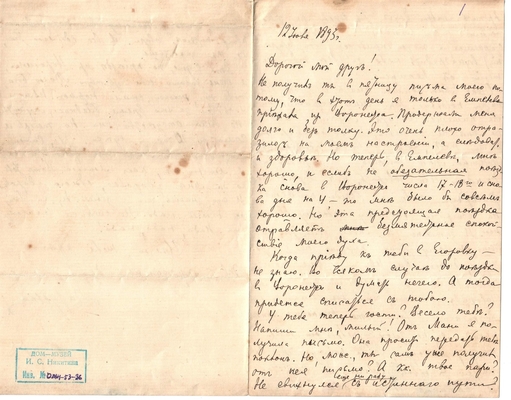 1
12 Июня 1895 г.
Дорогой мой друг!
Не получив ты в пятницу письма моего по
тому, что в этот день я только в Емпелева
приехала из Воронежа. Продержали меня
долго и без толку. Это очень плохо отра
зилось на моем настроении, а следоват.
и здоровьи. Но теперь, в Емпелеве, мне
хорошо, и если бы не обязательная поезд
ка снова в Воронеж числа 17-18го и снова
дня на 4 — то мне было бы совсем
хорошо. Но эта предстоящая поездка
отравляет безмятежное спокой
ствие моего духа.
Когда приеду к тебе в Егоровку —
не знаю. Во всяком случае до поездки
в Воронеж и думать нечего. А тогда
придется списаться с тобою.
У тебя теперь гости? Весело тебе?
Напиши мне, милый! От Мани я по
лучила письмо. Она просит передать тебе
поклон. Но, може, ты сам уже получил
от нея письмо? А как твое пари?
Не свихнулся еще ни разу с истинного пути?
ДОМ-МУЗЕЙ
И. С. Никитина
Инв. №